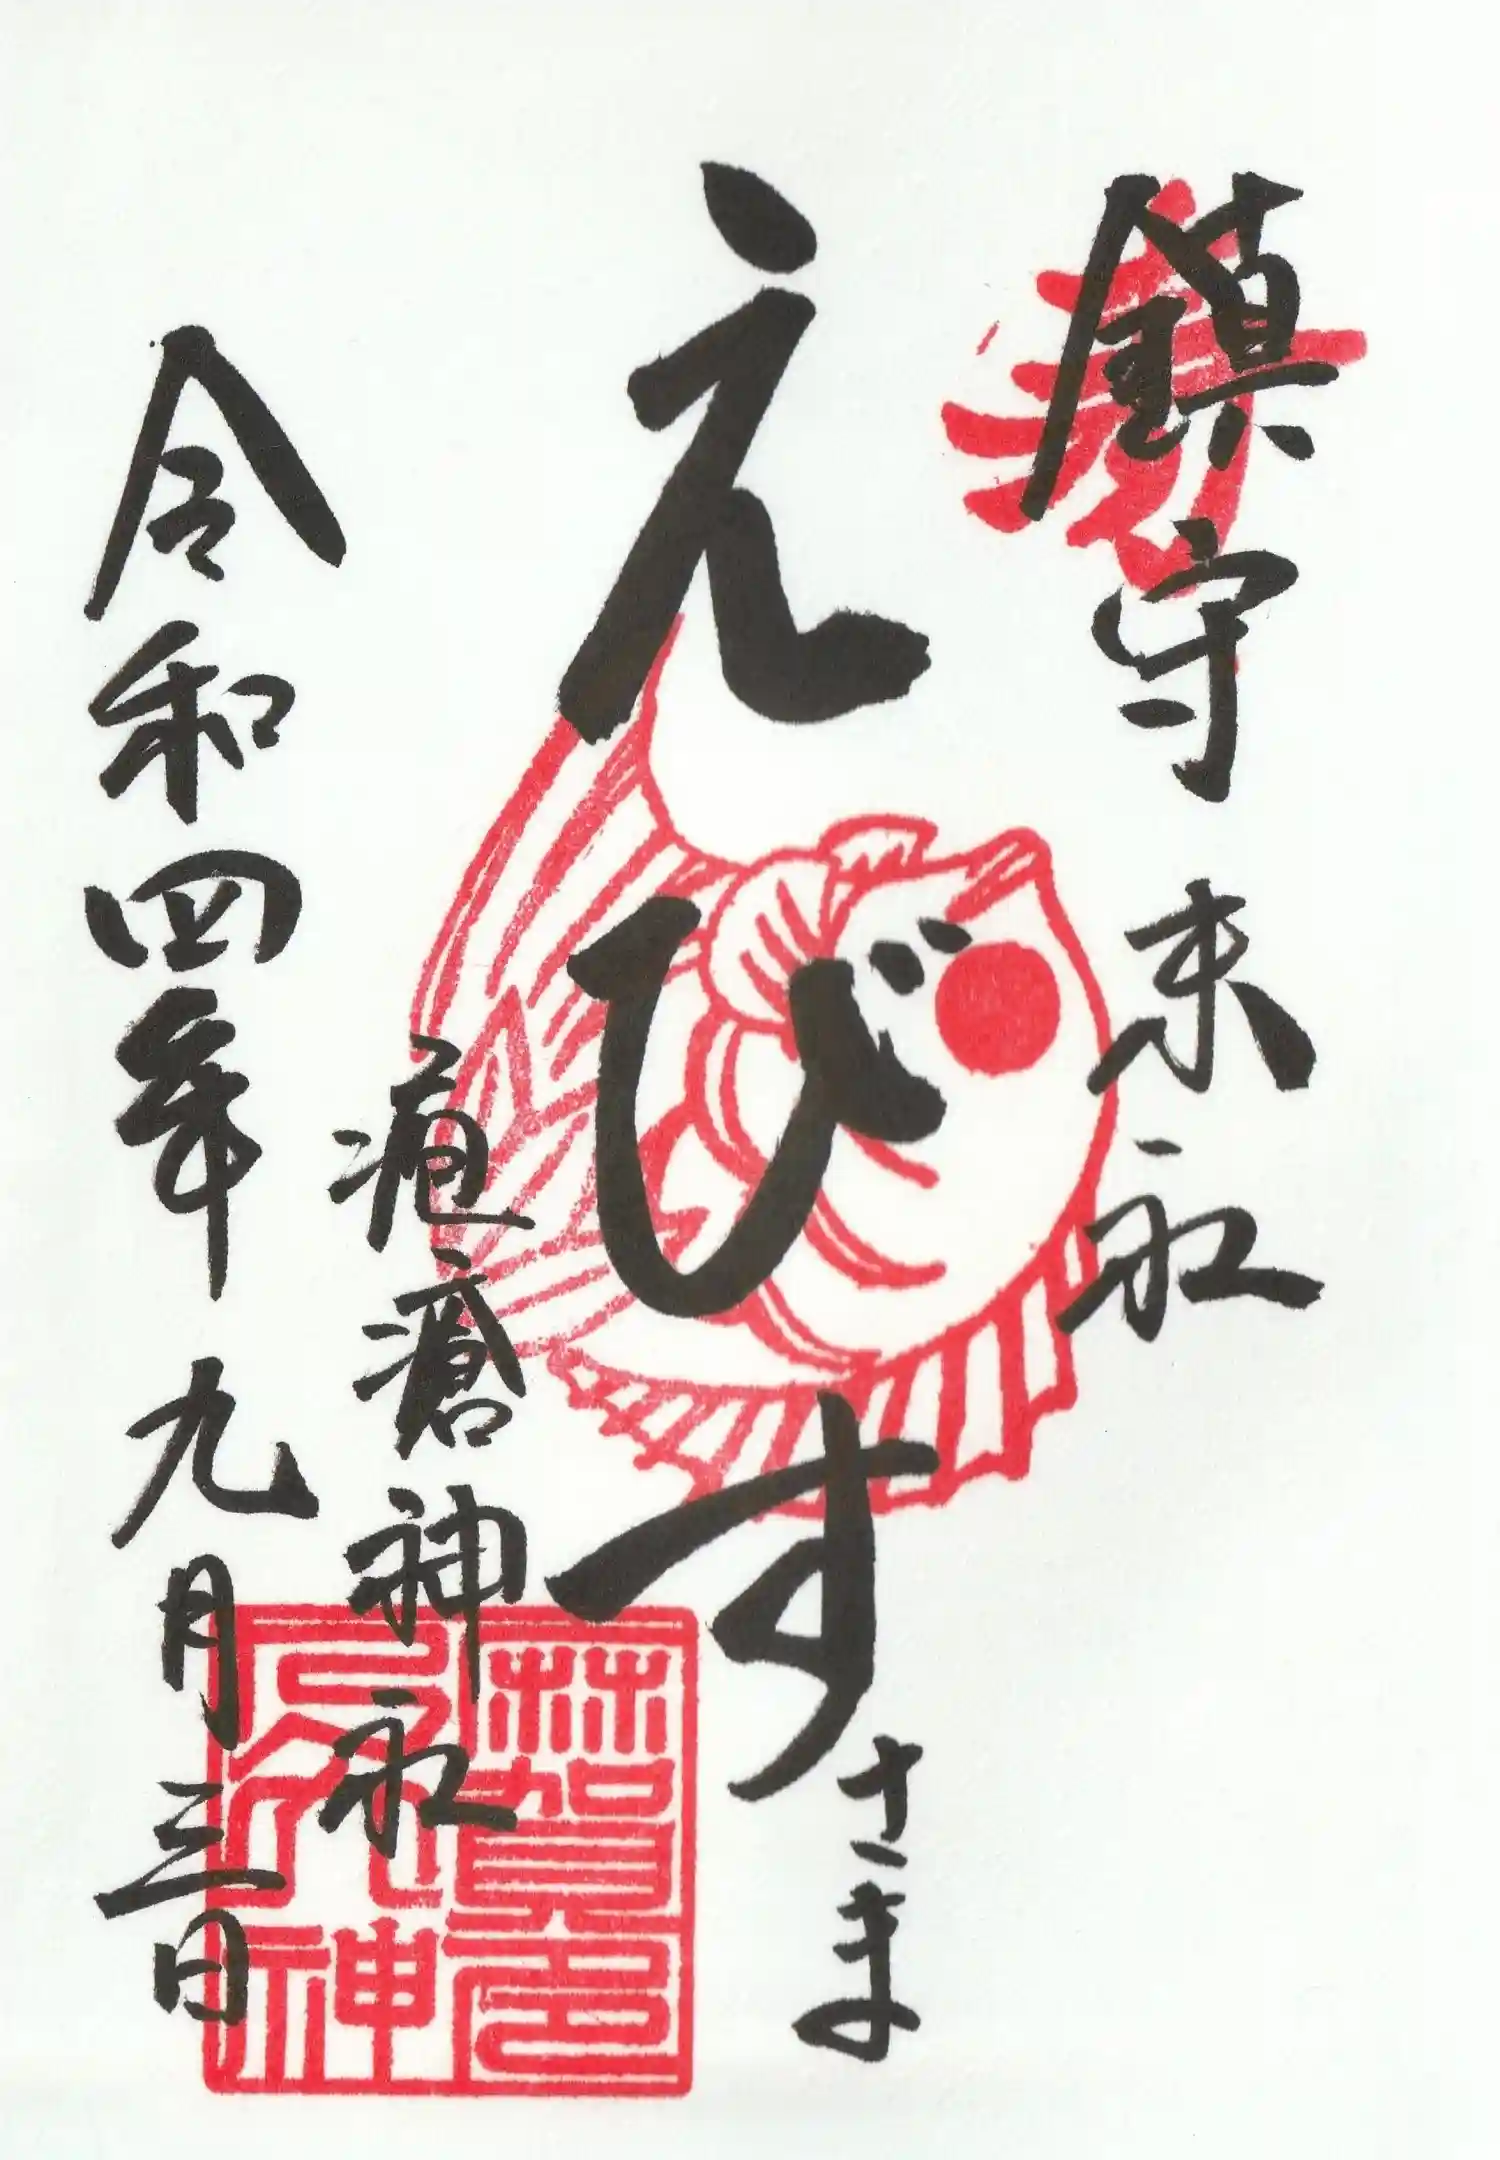 鎮守 末社
えびすさま
疱瘡神社
令和四年九月三日